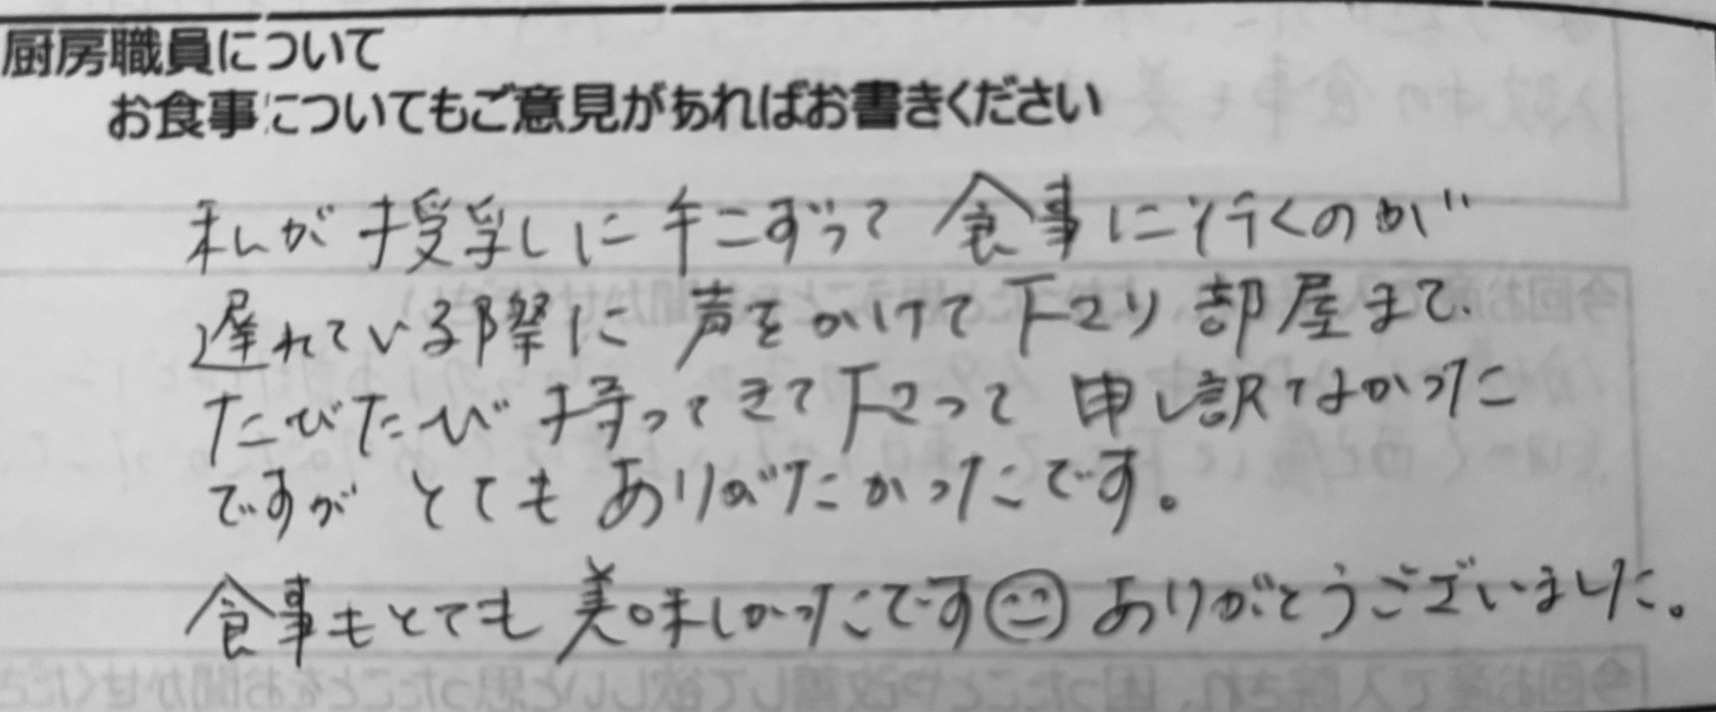 厨房職員について
お食事についてもご意見があればお書きください
私が授乳しに手こずって食事に行くのが
遅れている際に声をかけて下さり部屋まで
たびたび持ってきて下さって申し訳なかった
ですがとてもありがたかったです。
食事もとても美味しかったです☺ありがとうございました。